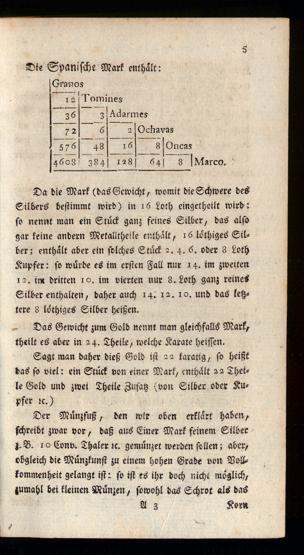 5
Die Spanische Mark enthält:
Granos
12 Tomines
36 3 Adarmes
72 6 2 Ochavas
576 48 16 8 Oncas
4608 384 128 64 8 Marco.
Da die Mark (das Gewicht, womit die Schwere des
Silbers bestimmt wird) in 16 Loth eingetheilt wird:
so nennt man ein Stück ganz feines Silber, das also
gar keine andern Metalltheile enthält, 16 löthiges Sil-
ber; enthält aber ein solches Stück 2. 4. 6. oder 8 Loth
Kupfer: so würde es im ersten Fall nur 14. im zweiten
12. im dritten 10. im vierten nur 8. Loth ganz reines
Silber enthalten, daher auch 14. 12. 10. und das letz-
tere 8 löthiges Silber heißen.
Das Gewicht zum Gold nennt man gleichfalls Mark,
theilt es aber in 24. Theile, welche Karate heissen.
Sagt man daher dieß Gold ist 22 karatig, so heißt
das so viel: ein Stück von einer Mark, enthält 22 Thei-
le Gold und zwei Theile Zusatz (von Silber oder Ku-
pfer ꝛc.)
Der Münzfuß, den wir oben erklärt haben,
schreibt zwar vor, daß aus Einer Mark feinem Silber
z.B. 10 Conv. Thaler ꝛc. gemünzet werden sollen; aber,
obgleich die Münzkunst zu einem hohen Grade von Voll-
kommenheit gelangt ist: so ist es ihr doch nicht möglich,
zumahl bei kleinen Münzen, sowohl das Schrot als das
A 3 Korn